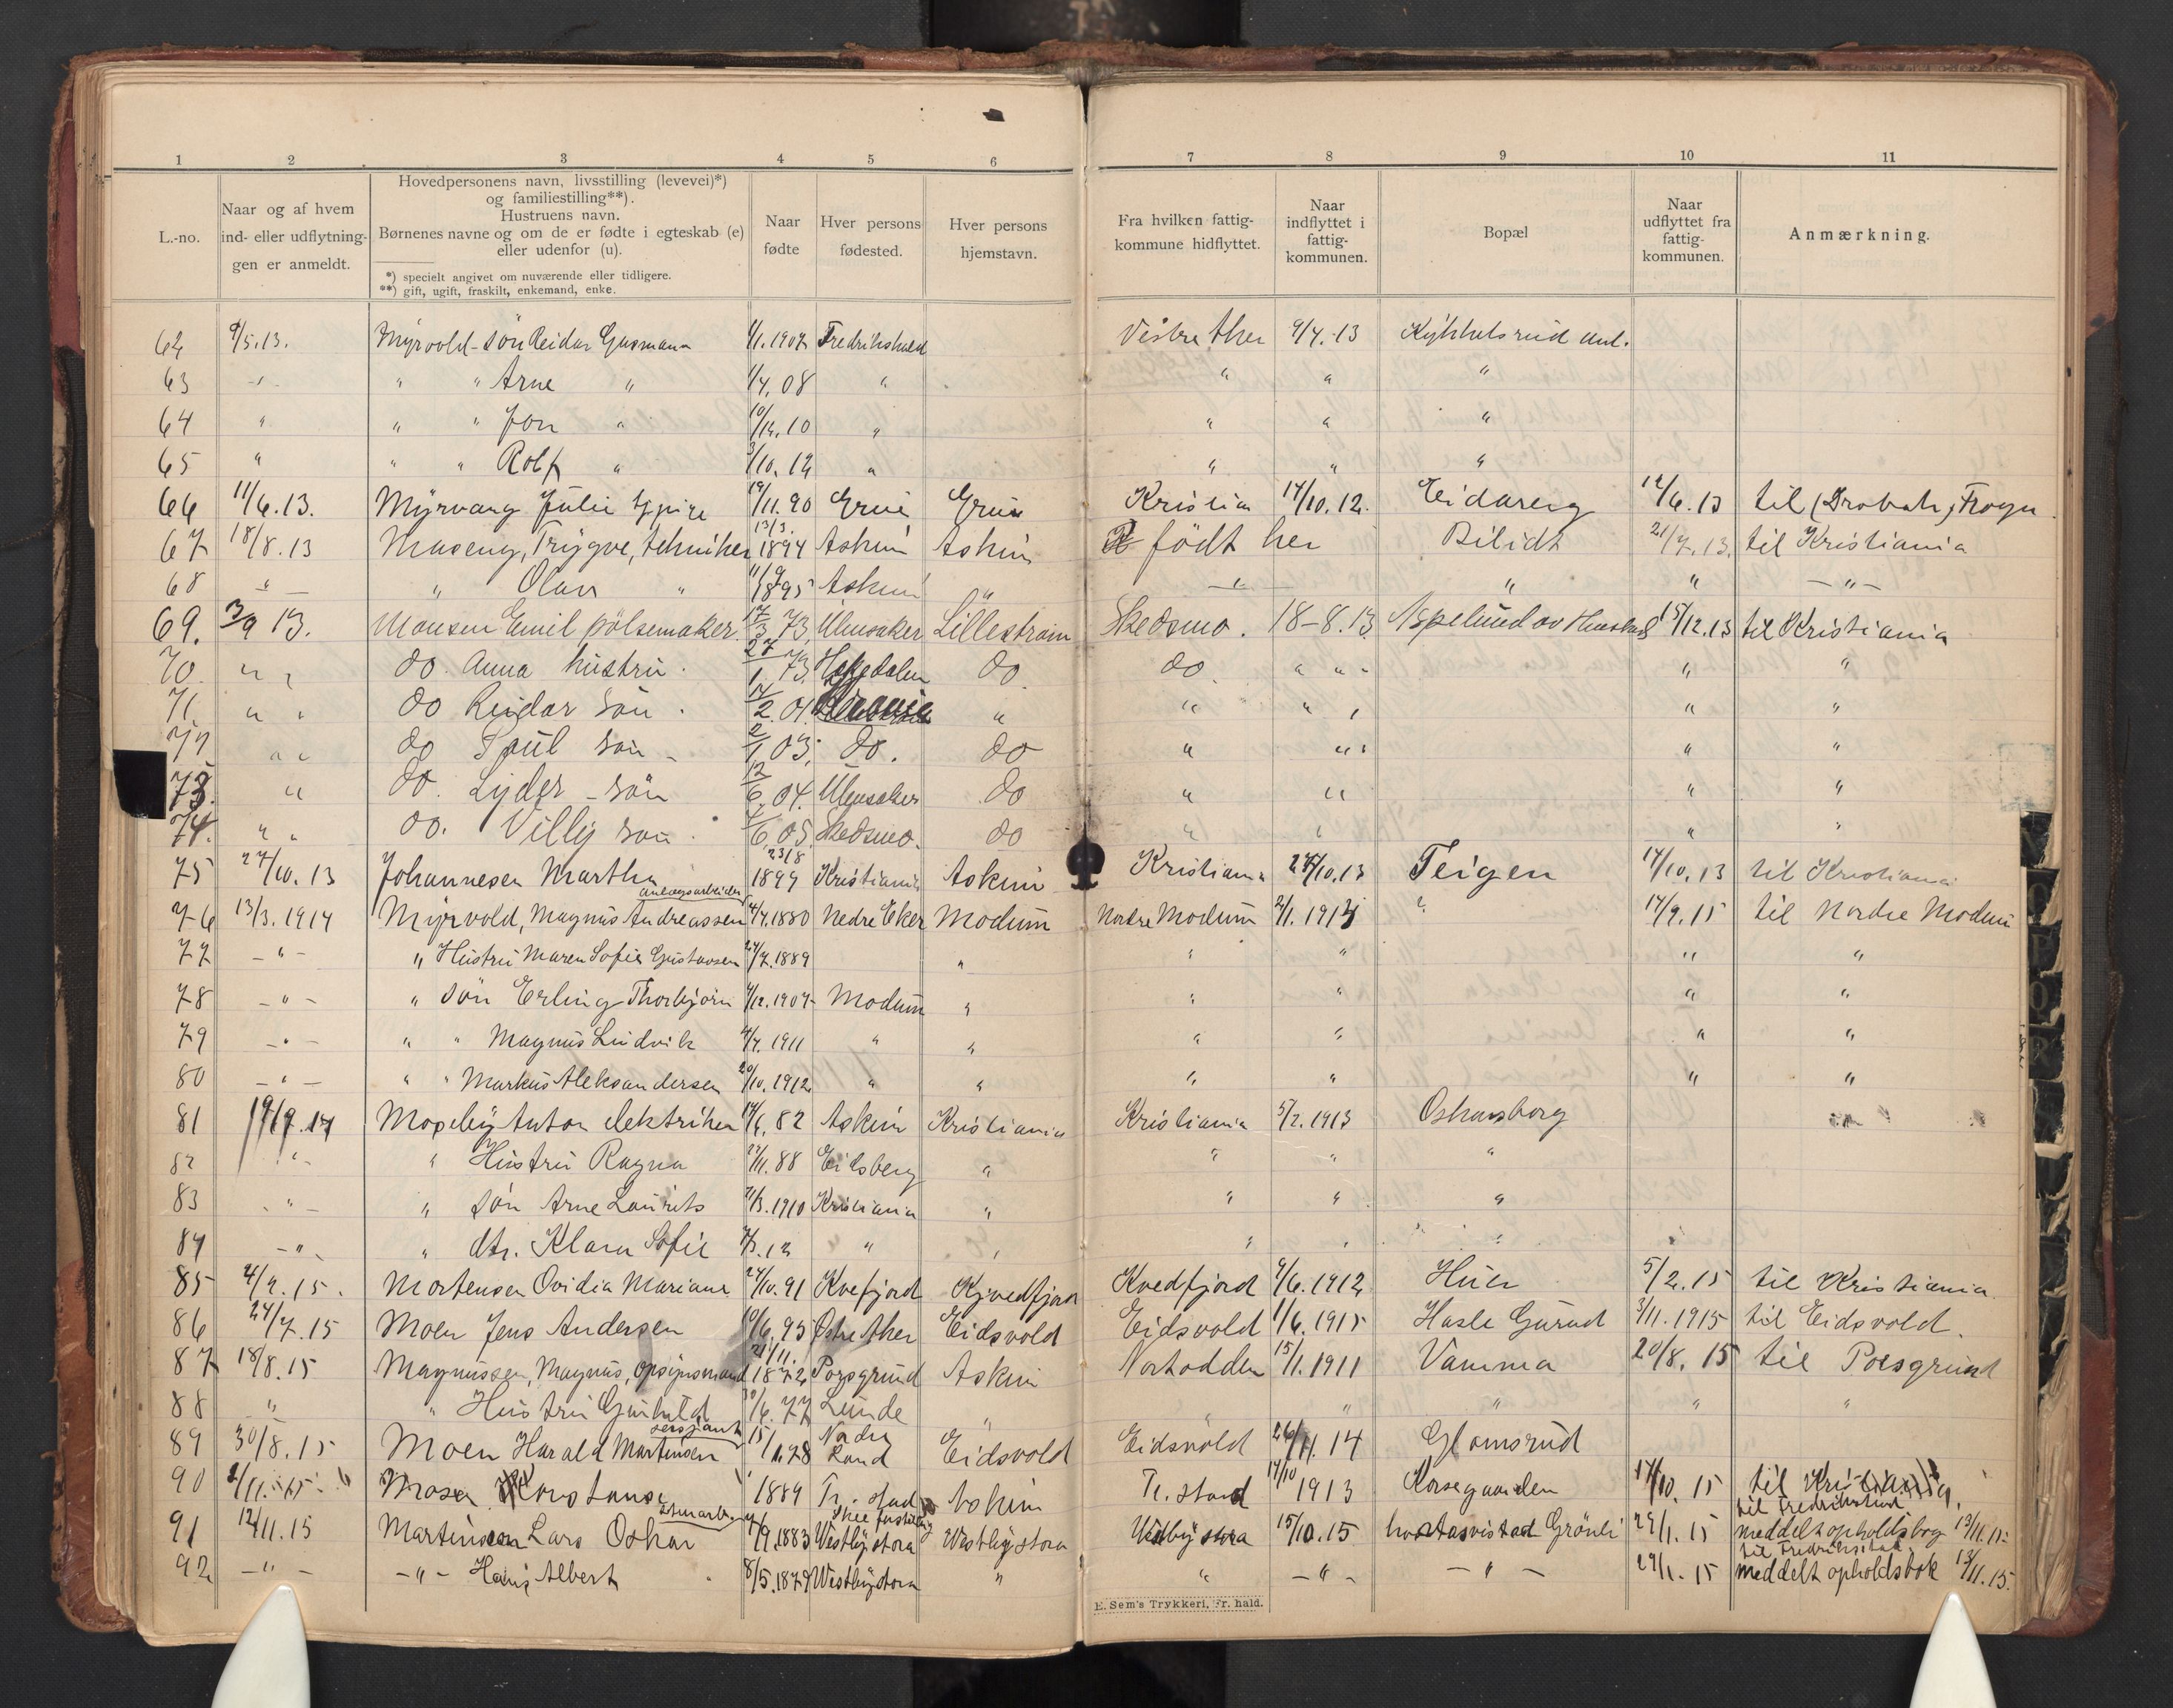 1 2 3 4 5 6 7 8 9 10 11
L.-no.
Naar og af hvem
ind- eller udflytnin-
gen er anmeldt.
Hovedpersonens navn, livsstilling (levevei)*)
og familiestilling**).
Hustruens navn.
Børnenes navne og om de er fødte i egteskab (e)
eller udenfor (u).
*) specielt angivet om nuværende eller tidligere.
**) gift, ugift, fraskilt, enkemand, enke.
Naar
fødte
Hver persons
fødested.
Hver persons
hjemstavn.
Fra hvilken fattig-
kommune hidflyttet.
Naar
indflyttet i
fattig-
kommunen.
Bopæl
Naar
udflyttet fra
fattig-
kommunen.
Anmærkning.
62 9/5.13. Myrvold - søn Reidar Gusmann 1/1.1907 Fredrikshald 9/4.13 Kykkelsrud anl.
63 " " " Arne " 1/4.08 " " " "
64 " " " Jon " 10/12.10 " " " "
65 " " " Rolf " 3/10.12 " " " "
66 11/6.13. Myrvang Julie 19/11.90 Grue Grue Kristia 14/10.12. Eidareng 12/6.13 til (Drøbak) Frogn
67 18/8.13 Maseng, Trygve, tekniker 13/3. 1894 Askim Askim født her Bilidt 21/7.13. til Kristiania
68 " " Olav " 1895 Askim " " " " - " -
69. 3/9 13. Monsen Emil pølsemaker 17/3 73 Ulensaker Lillestrøm Skedsmo. 18-8.13 Aspelund 15/12.13 til Kristiania
70. " " do. Anna hustru. 27/1 73. Hakedalen do do. " " " "
71. " " do Reidar søn. 14/2.01. " " " " "
72 " " do Paul søn 2/1 03. do. do " " " "
73. " do. Lyder - søn 12/6.04. Ulensaker do " " " "
74. " " do. Villy søn. 6.05. Skedsmo. do " " " "
75 27/10.13 Johannesen Martha 23/8 1899 Kristiania Askim Kristiania 27/10.13 Teigen 14/10.13 til Kristiania
76 13/3.1914 Myrvold, Magnus Andreassen anlægsarbeider 4/4.1880 Nedre Eker Modum Nordre Modum 2/1.1913 " 14/9.15 til Nordre Modum
77 - " - " Hustru Maren Sofie Gustavsen 24/7.1889 " " " " "
78 - " - " søn Erling Thorbjørn 4/12.1907 Modum " " " " "
79 - " - " " Magnus Ludvik 4/4.1911 " " " " " "
80 - " - " " Markus Aleksandersen 20/10.1912 " " " " " "
81 19/9.14 Moseby Anton elektriker 14/6.82 Askim Kristiania Kristiania 5/2.1913 Oskarsborg
82 " - " Hustru Ragna 27/11.88 Eidsberg " " " "
83 " - " søn Arne Laurits 21/3.1910 Kristiania " " " "
84 - " - " dtr. Klara Sofie 7/3.12 " " " " "
85 4/2.15. Mortensen Ovidia Mariane 24/10.91 Kvefjord Kjvedfjord Kvedfjord 9/6.1912 Huer 5/2.15 til Kristiania
86 24/7.15 Moen Jens Andersen 10/6.95 Østre Aker Eidsvold Eidsvold 1/6.1915 Hasle Gurud 3/11.1915 til Eidsvold.
87 18/8.15 Magnussen, Magnus, opsynsmand 21/11. 1872 Porsgrund Askim Notodden 15/1.1911 Vamma 20/8.15 til Porsgrund
88 " " Hustru Gunhild 30/6.77 Lunde " " " " " "
89 30/8.15 Moen Harald Martinsen sersjant 15/1.78 Nordre Land Eidsvold Eidsvold 26/11.14 Glomsrud
90 2/11.15 Mosen Konstanse 1889 Tr. stad Askim Tr. stad 14/10 1913 Korsegaarden 14/10.15 til Kristiania.
91 12/11.15 Martinsen Lars Oskar 1/9.1883 Westby stora Westby stora Vestby stora 15/10.15 Grönli 29/1.15 til Fredrikstad meddelt opholdsbog 13/11.15
92 - " - - " - Hans Albert 8/5.1879 Westby stora " " - " - - " - 29/1.15 til Fredrikstad meddelt opholdsbok 13/11.15.
E. Sem's Trykkeri, Fr. hald.